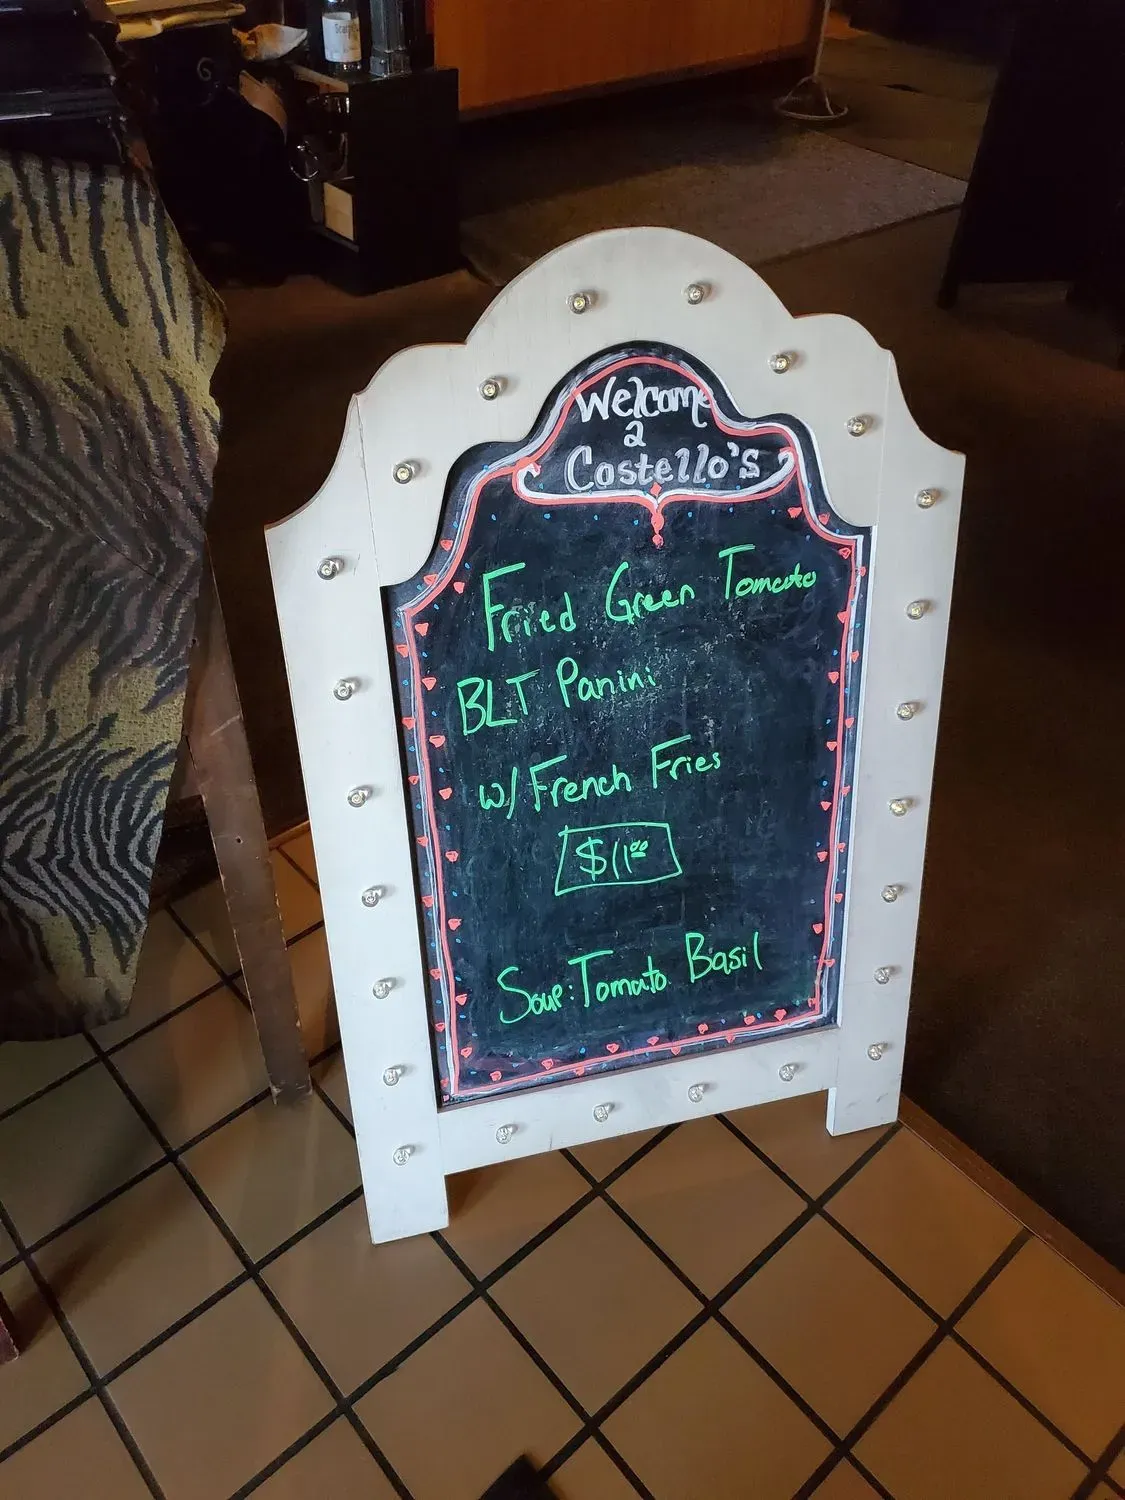 Welcome
2
Costello's
Fried Green Tomato
BLT Panini
w/ French Fries
$11.00
Soup: Tomato Basil